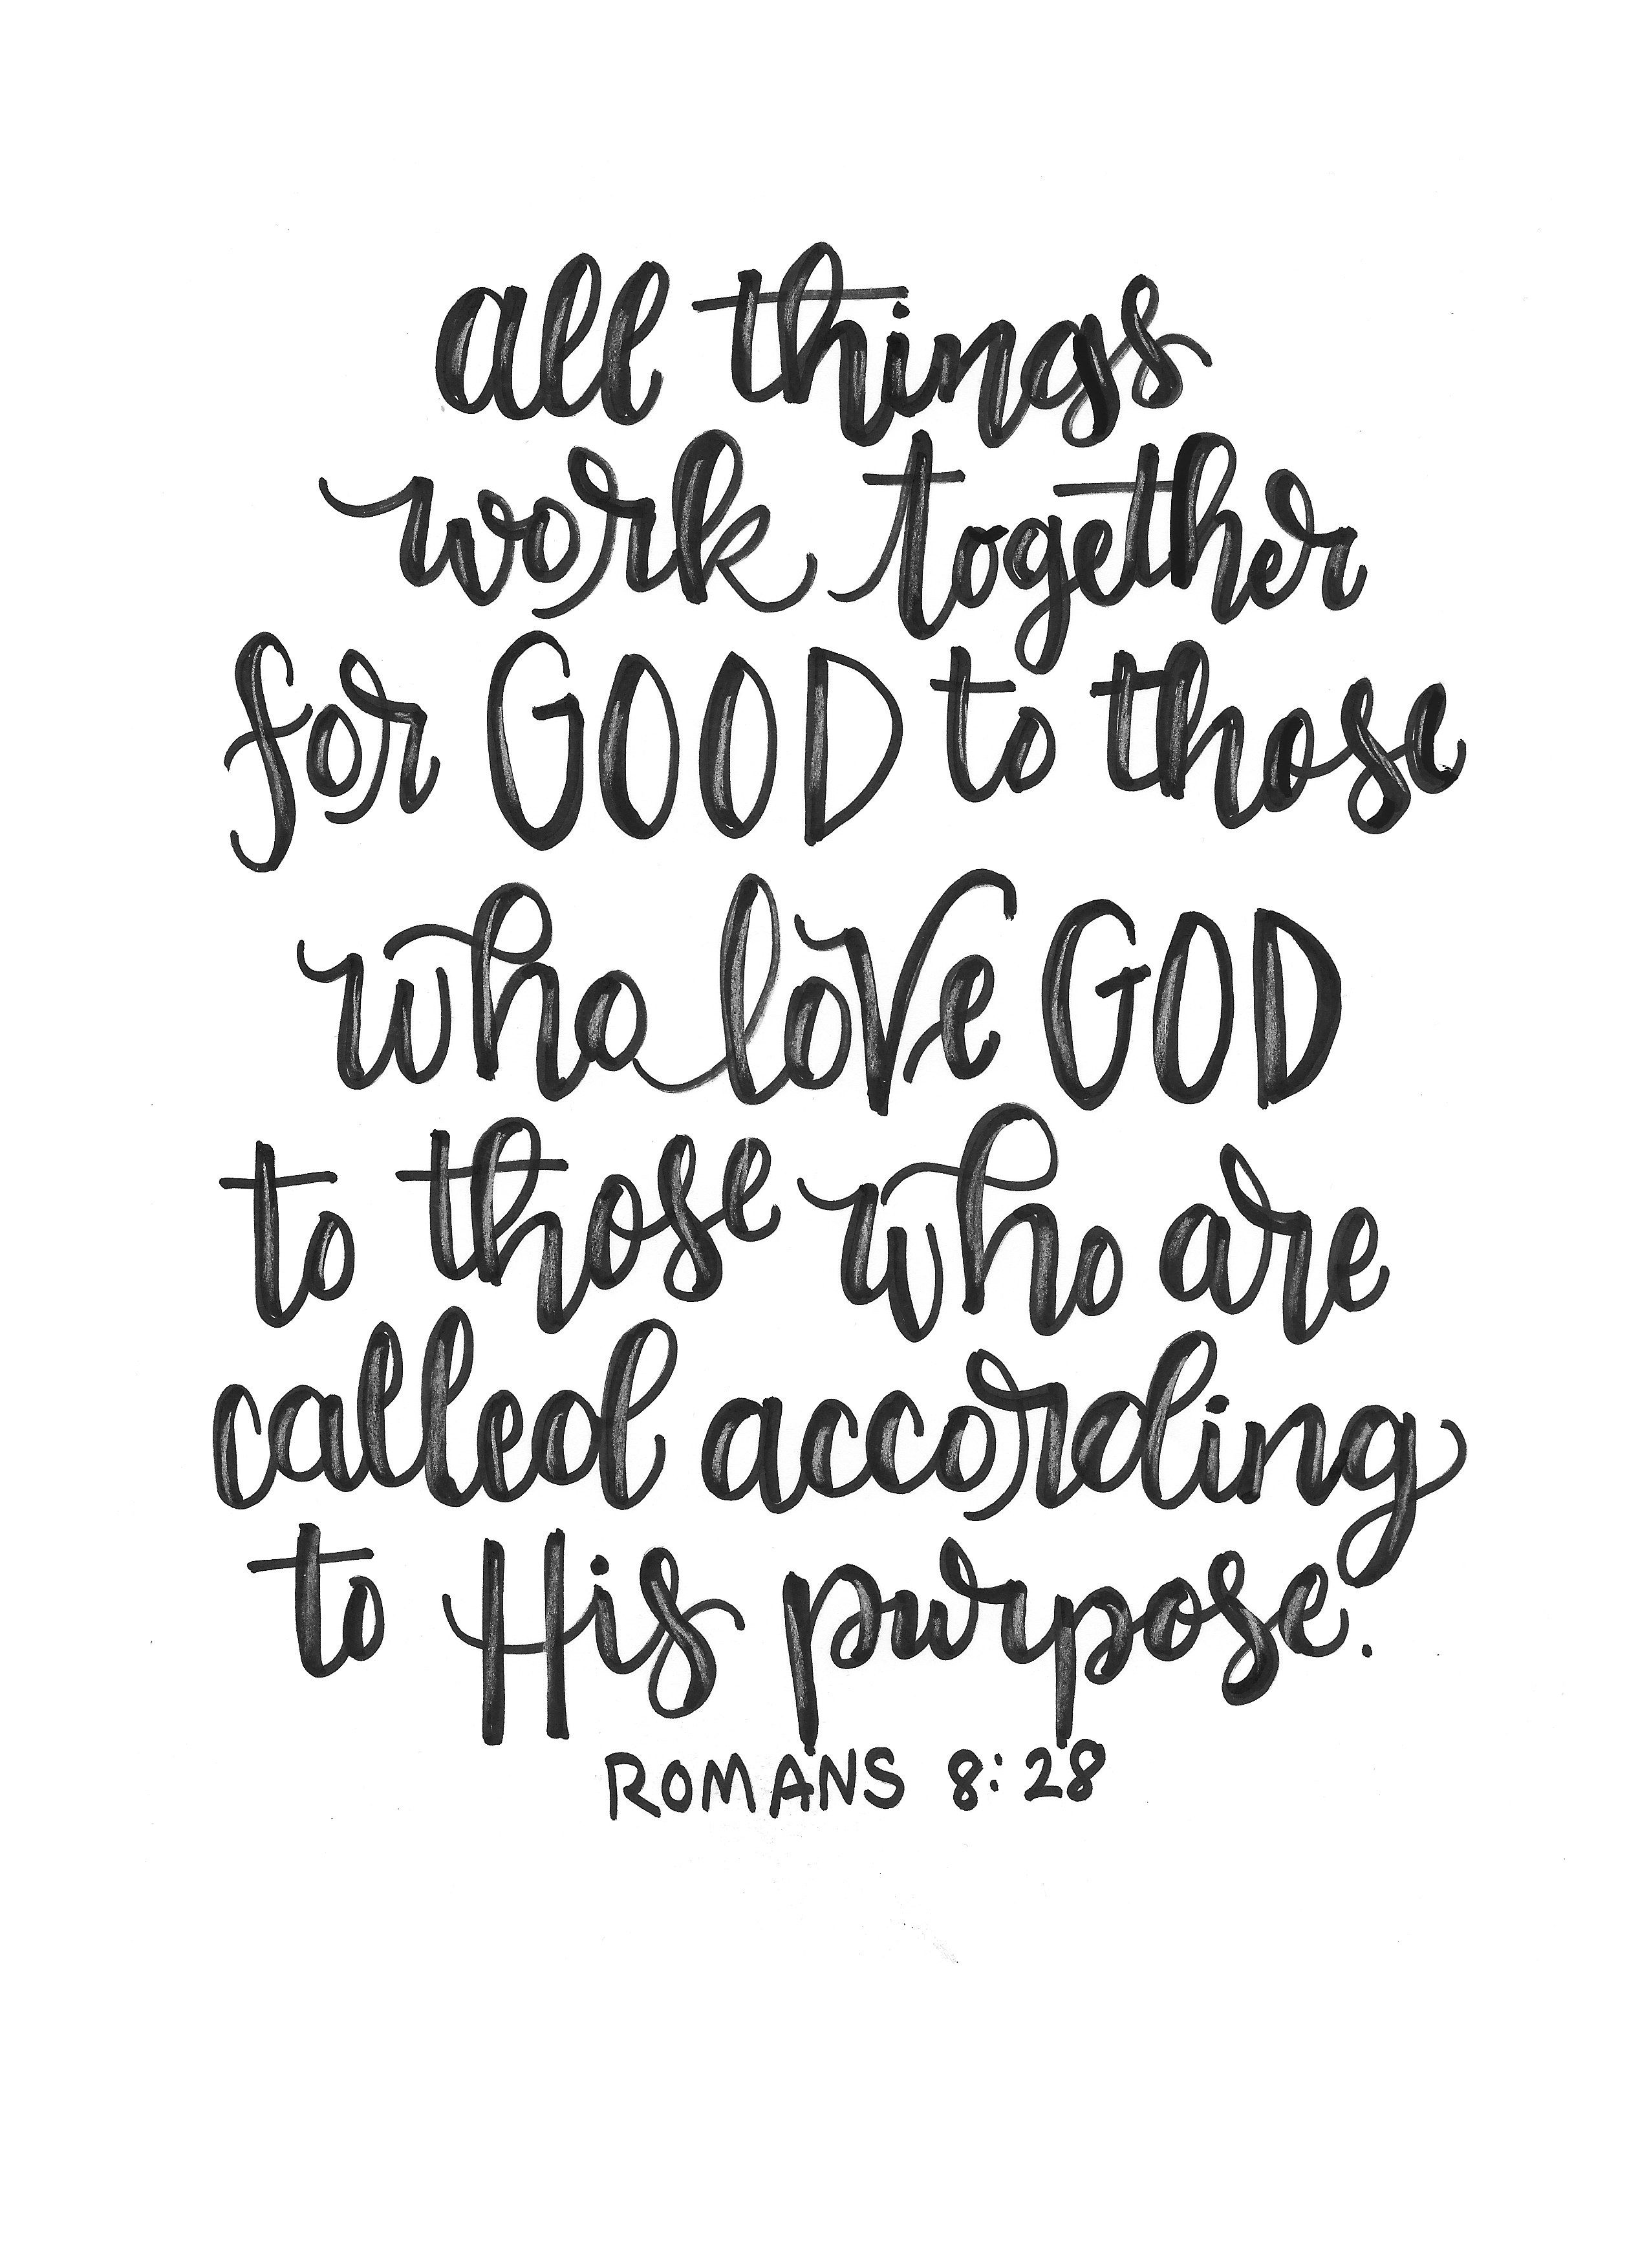 all things
work together
for GOOD to those
who love GOD
to those who are
called according
to His purpose.
ROMANS 8:28